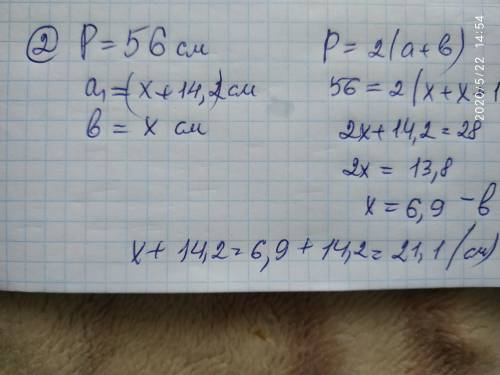 ② P = 56 см
a₁ = (x + 14,2) см
в = x см
P = 2(a + в)
56 = 2(x + x + 1
2x + 14,2 = 28
2x = 13,8
x = 6,9 - в
x + 14,2 = 6,9 + 14,2 = 21,1 (см)
2020/5/22 14:54